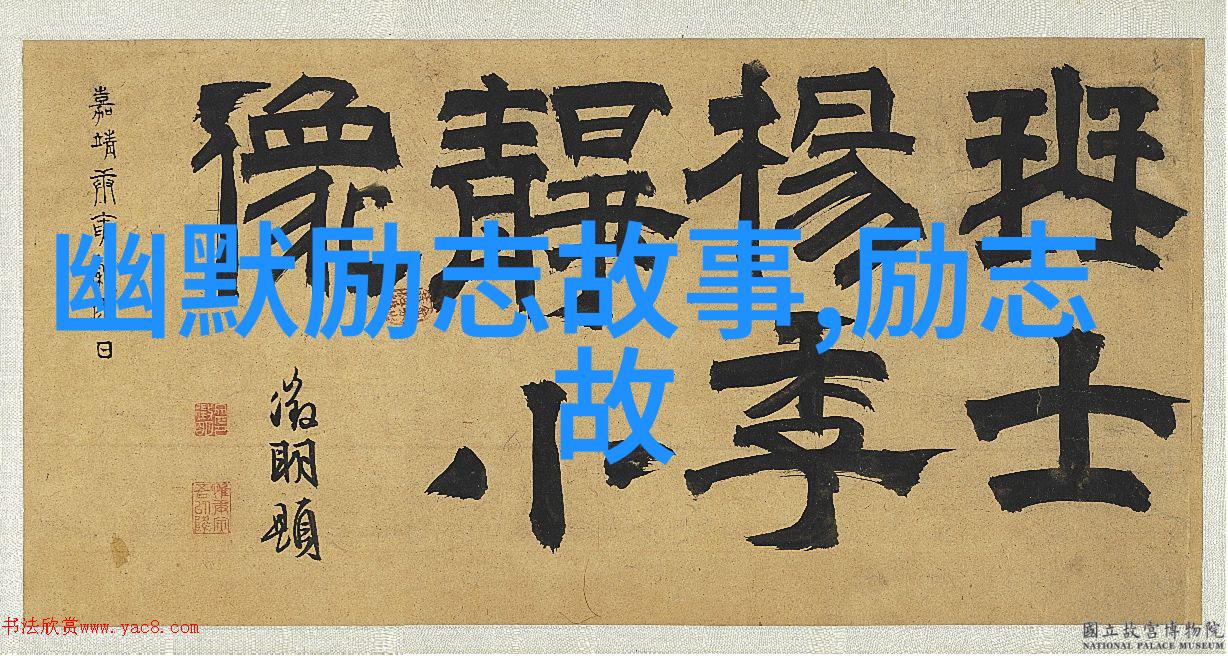 士
楊季
靜小
像
嘉靖庚寅
日
徵明題
幽默励志故事,励志
故
书法欣赏www.yac8.com
國立故宮博物院
NATIONAL PALACE MUSEUM